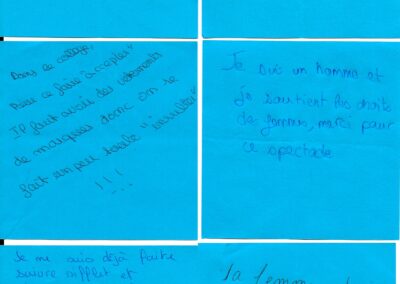 Dans le collège,
Pour ce faire accepter
Il faut avoir des vêtements
de marques donc on se
fait un peu toute "insulter"
!!!
Je suis un homme et
je soutient les droits
de femmes, merci pour
ce spectacle
Je me suis déjà faite
suivre siffler et
la femme